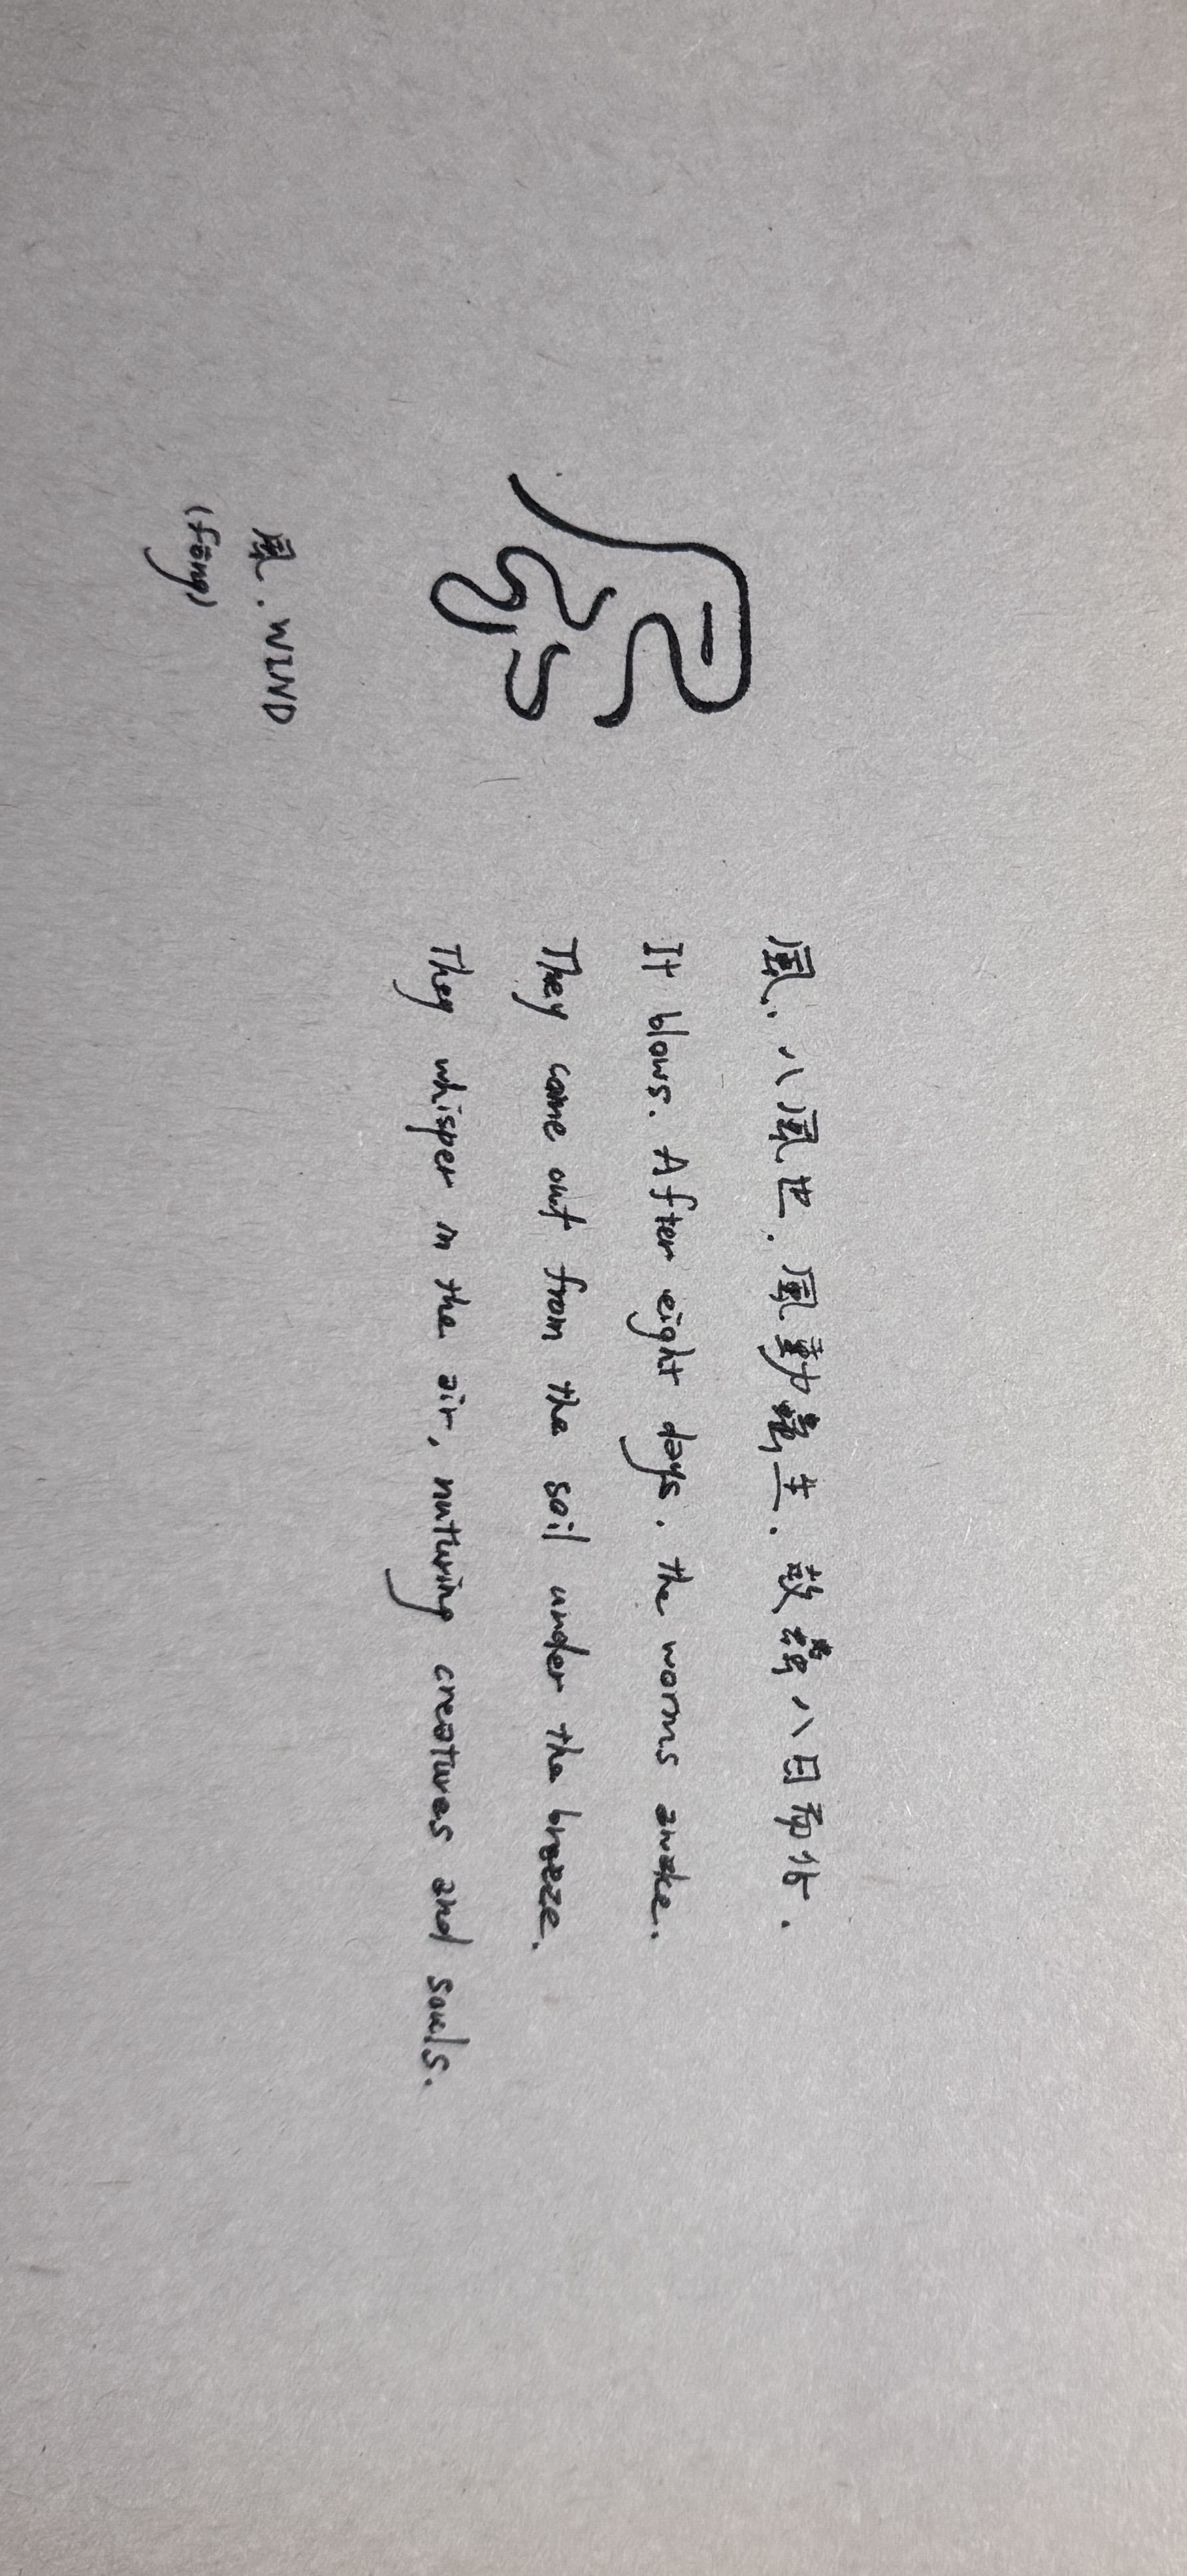 風
風. WIND
(fēng)
風. 八風也. 風動蟲生. 故蟲八日而化.
It blows. After eight days. the worms awake.
They come out from the soil under the breeze.
They whisper in the air, nuturing creatures and souls.